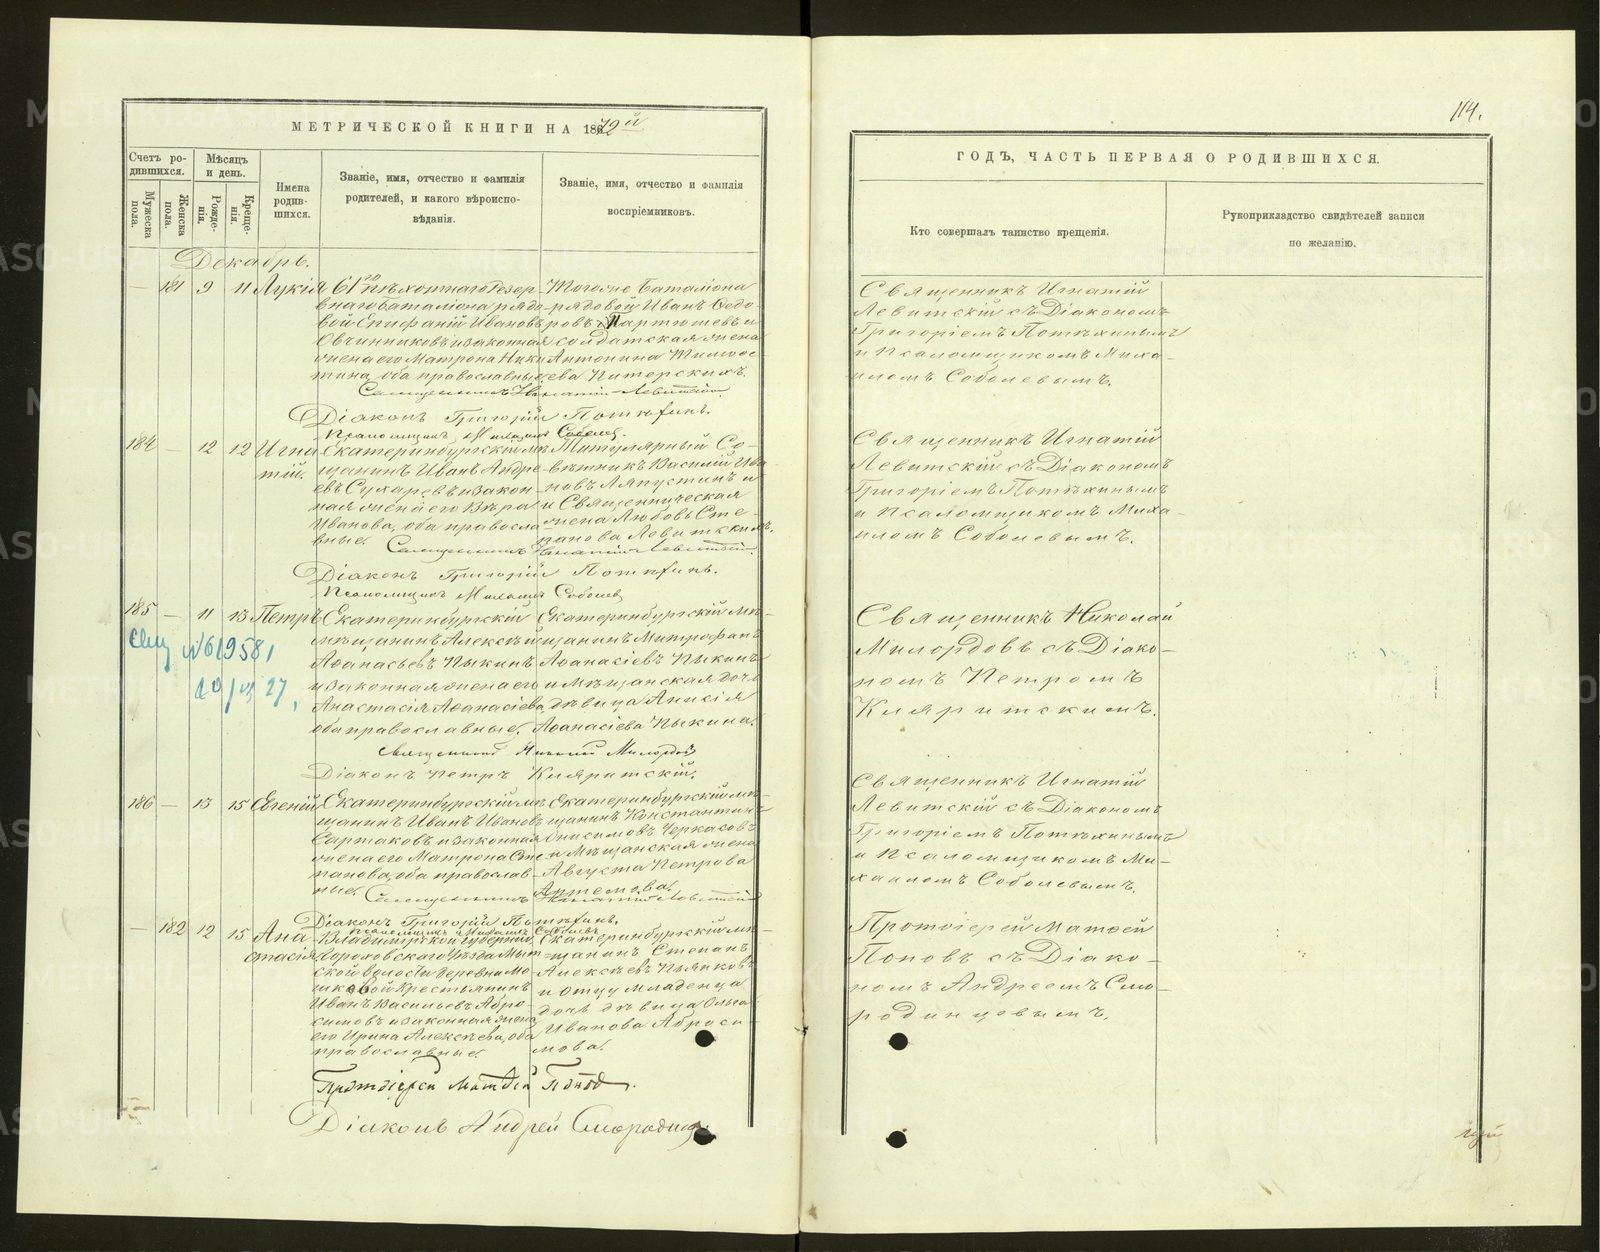 МЕТРИЧЕСКОЙ КНИГИ НА 1872й
Счетъ родившихся.
Мужеска пола.
Женска пола.
Мѣсяцъ и день.
Рожденія.
Крещенія.
Имена родившихся.
Званіе, имя, отчество и фамилія
родителей, и какого вѣроиспо-
вѣданія.
Званіе, имя, отчество и фамилія
воспріемниковъ.
Декабрь.
181 9 11 Лукія
61го пѣхотнаго Резер-
внаго баталіона рядо-
вой Епифаній Ивановъ
Овчинниковъ и законная
жена его Матрона Ники-
тина, оба православные
Тогоже баталіона
рядовой Иванъ Ѳедо-
ровъ Мартюшевъ и
солдатская жена
Антонина Тимоѳе-
ева Питерскихъ.
Священникъ Игнатій Левитскій
Діаконъ Григорій Потѣхинъ.
Псаломщикъ Михаилъ Соболевъ.
184 12 12 Игна-
тій.
Екатеринбургскій мѣ-
щанинъ Иванъ Андре-
евъ Сухаревъ и закон-
ная жена его Вѣра
Иванова, оба правосла-
вные.
Титулярный Со-
вѣтникъ Василій Ива-
новъ Ляпустинъ и
Священническая
жена Любовь Сте-
панова Левитскихъ.
Священникъ Игнатій Левитскій.
Діаконъ Григорій Потѣхинъ.
Псаломщикъ Михаилъ Соболевъ
185 11 13 Петръ
Екатеринбургскій
мѣщанинъ Алексѣй
Аѳанасьевъ Пыкинъ
и законная жена его
Анастасія Аѳанасіева,
оба православные.
Екатеринбургскій мѣ-
щанинъ Митрофанъ
Аѳанасіевъ Пыкинъ
и мѣщанская дочь
дѣвица Анисія
Аѳанасіева Пыкина.
№619581
27
Священникъ Николай Милордовъ
Діаконъ Петръ Кипаритскій.
186 13 15 Евгеній
Екатеринбургскій мѣ-
щанинъ Иванъ Ивановъ
Сартаковъ и законная
жена его Матрона Сте-
панова, оба православ-
ные.
Екатеринбургскій мѣ-
щанинъ Константинъ
Онисимовъ Черкасовъ
и Мѣщанская жена
Августа Петрова
Артемова.
Священникъ Игнатій Левитскій
Діаконъ Григорій Потѣхинъ.
Псаломщикъ Михаилъ Соболевъ
182 12 15 Ана-
стасія
Владимірской губерніи,
Гороховскаго Уѣзда Мыт-
ской волости деревни Мо-
шковой Крестьянинъ
Иванъ Васильевъ Абро-
симовъ и законная жена
его Ирина Алексѣева, оба
православные.
Екатеринбургскій мѣ-
щанинъ Степанъ
Алексѣевъ Пьянковъ
и отцу младенца
дочь дѣвица Ольга
Иванова Аброси-
мова.
Протоіерей Матѳей Поповъ.
Діаконъ Андрей Смородинцевъ
114.
ГОДЪ, ЧАСТЬ ПЕРВАЯ О РОДИВШИХСЯ.
Кто совершалъ таинство крещенія.
Рукоприкладство свидѣтелей записи
по желанію.
Священникъ Игнатій
Левитскій съ Діакономъ
Григоріемъ Потѣхинымъ
и Псаломщикомъ Миха-
иломъ Соболевымъ.
Священникъ Игнатій
Левитскій съ Діакономъ
Григоріемъ Потѣхинымъ
и Псаломщикомъ Миха-
иломъ Соболевымъ.
Священникъ Николай
Милордовъ съ Діако-
номъ Петромъ
Кипаритскимъ.
Священникъ Игнатій
Левитскій съ Діакономъ
Григоріемъ Потѣхинымъ
и Псаломщикомъ Ми-
хаиломъ Соболевымъ.
Протоіерей Матѳей
Поповъ съ Діако-
номъ Андреемъ Смо-
родинцевымъ.